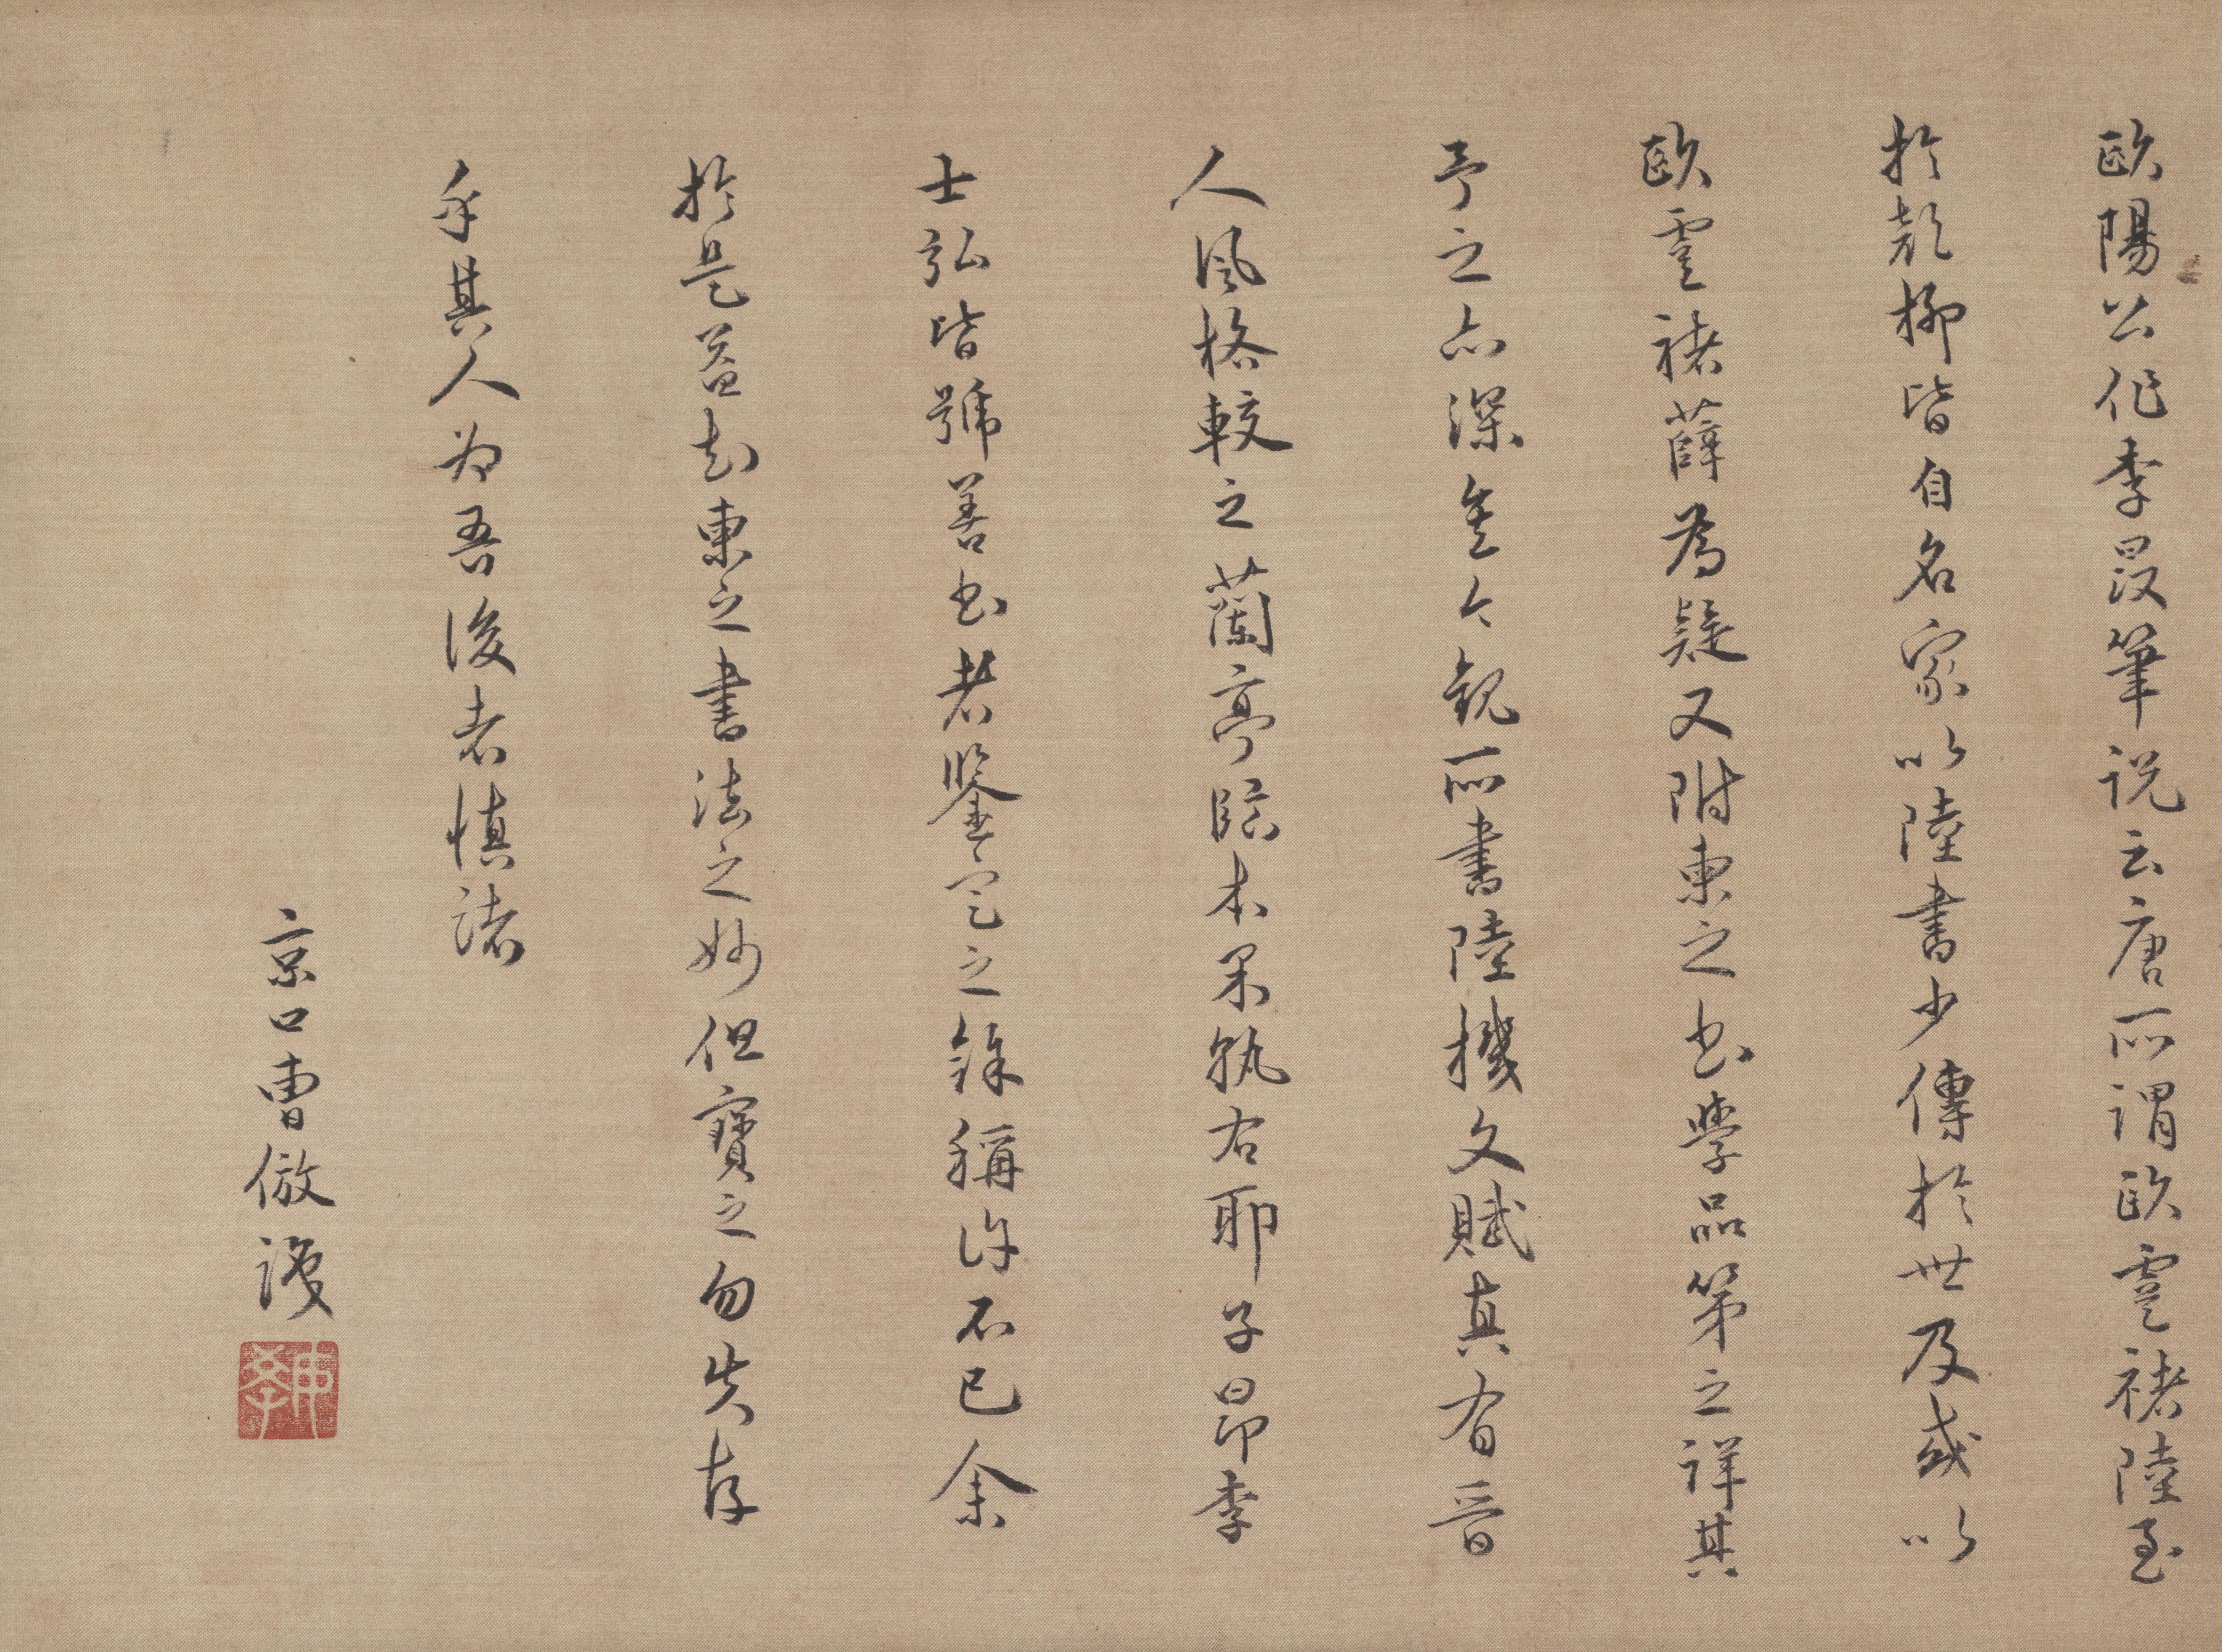 歐陽公作李晸筆說云唐所謂歐虞褚陸至
於顏柳皆自名家以陸書少傳於世及或以
歐虞褚薛為疑又附柬之書學品第之詳其
予之亦深矣今觀所書陸機文賦真有晉
人風格較之蘭亭臨本果孰右耶子昂李
士弘皆號善書者鑒定之餘稱許不已余
於是益知柬之書法之妙但寶之勿失存
乎其人為吾後者慎諸
京口曹倣識